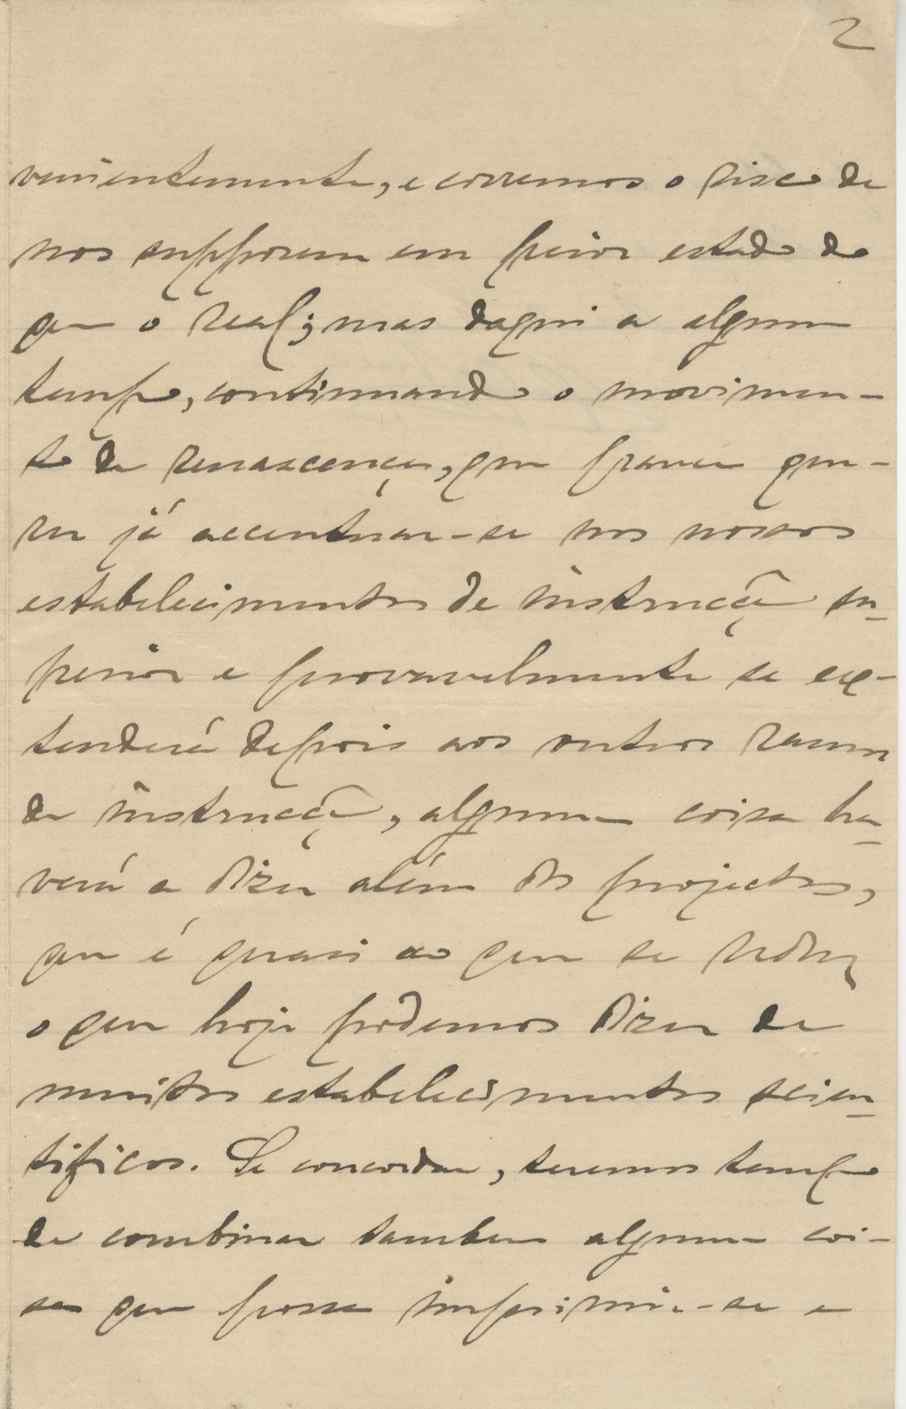 2
venientemente, e corremos o risco de
nos supporem em peior estado do
que o real; mas daqui a algum
tempo, continuando o movimen-
to de renascença, que parece que-
rer já accentuar-se nos nossos
estabelecimentos de instrucção su-
perior e provavelmente se ex-
tenderá depois aos outros ramos
de instrucção, alguma coisa ha-
verá a dizer além dos projectos,
que é quasi ao que se reduz
o que hoje podemos dizer de
muitos estabelecimentos scien-
tificos. Se concordar, teremos tempo
de combinar tambem alguma coi-
sa que possa imprimir-se e